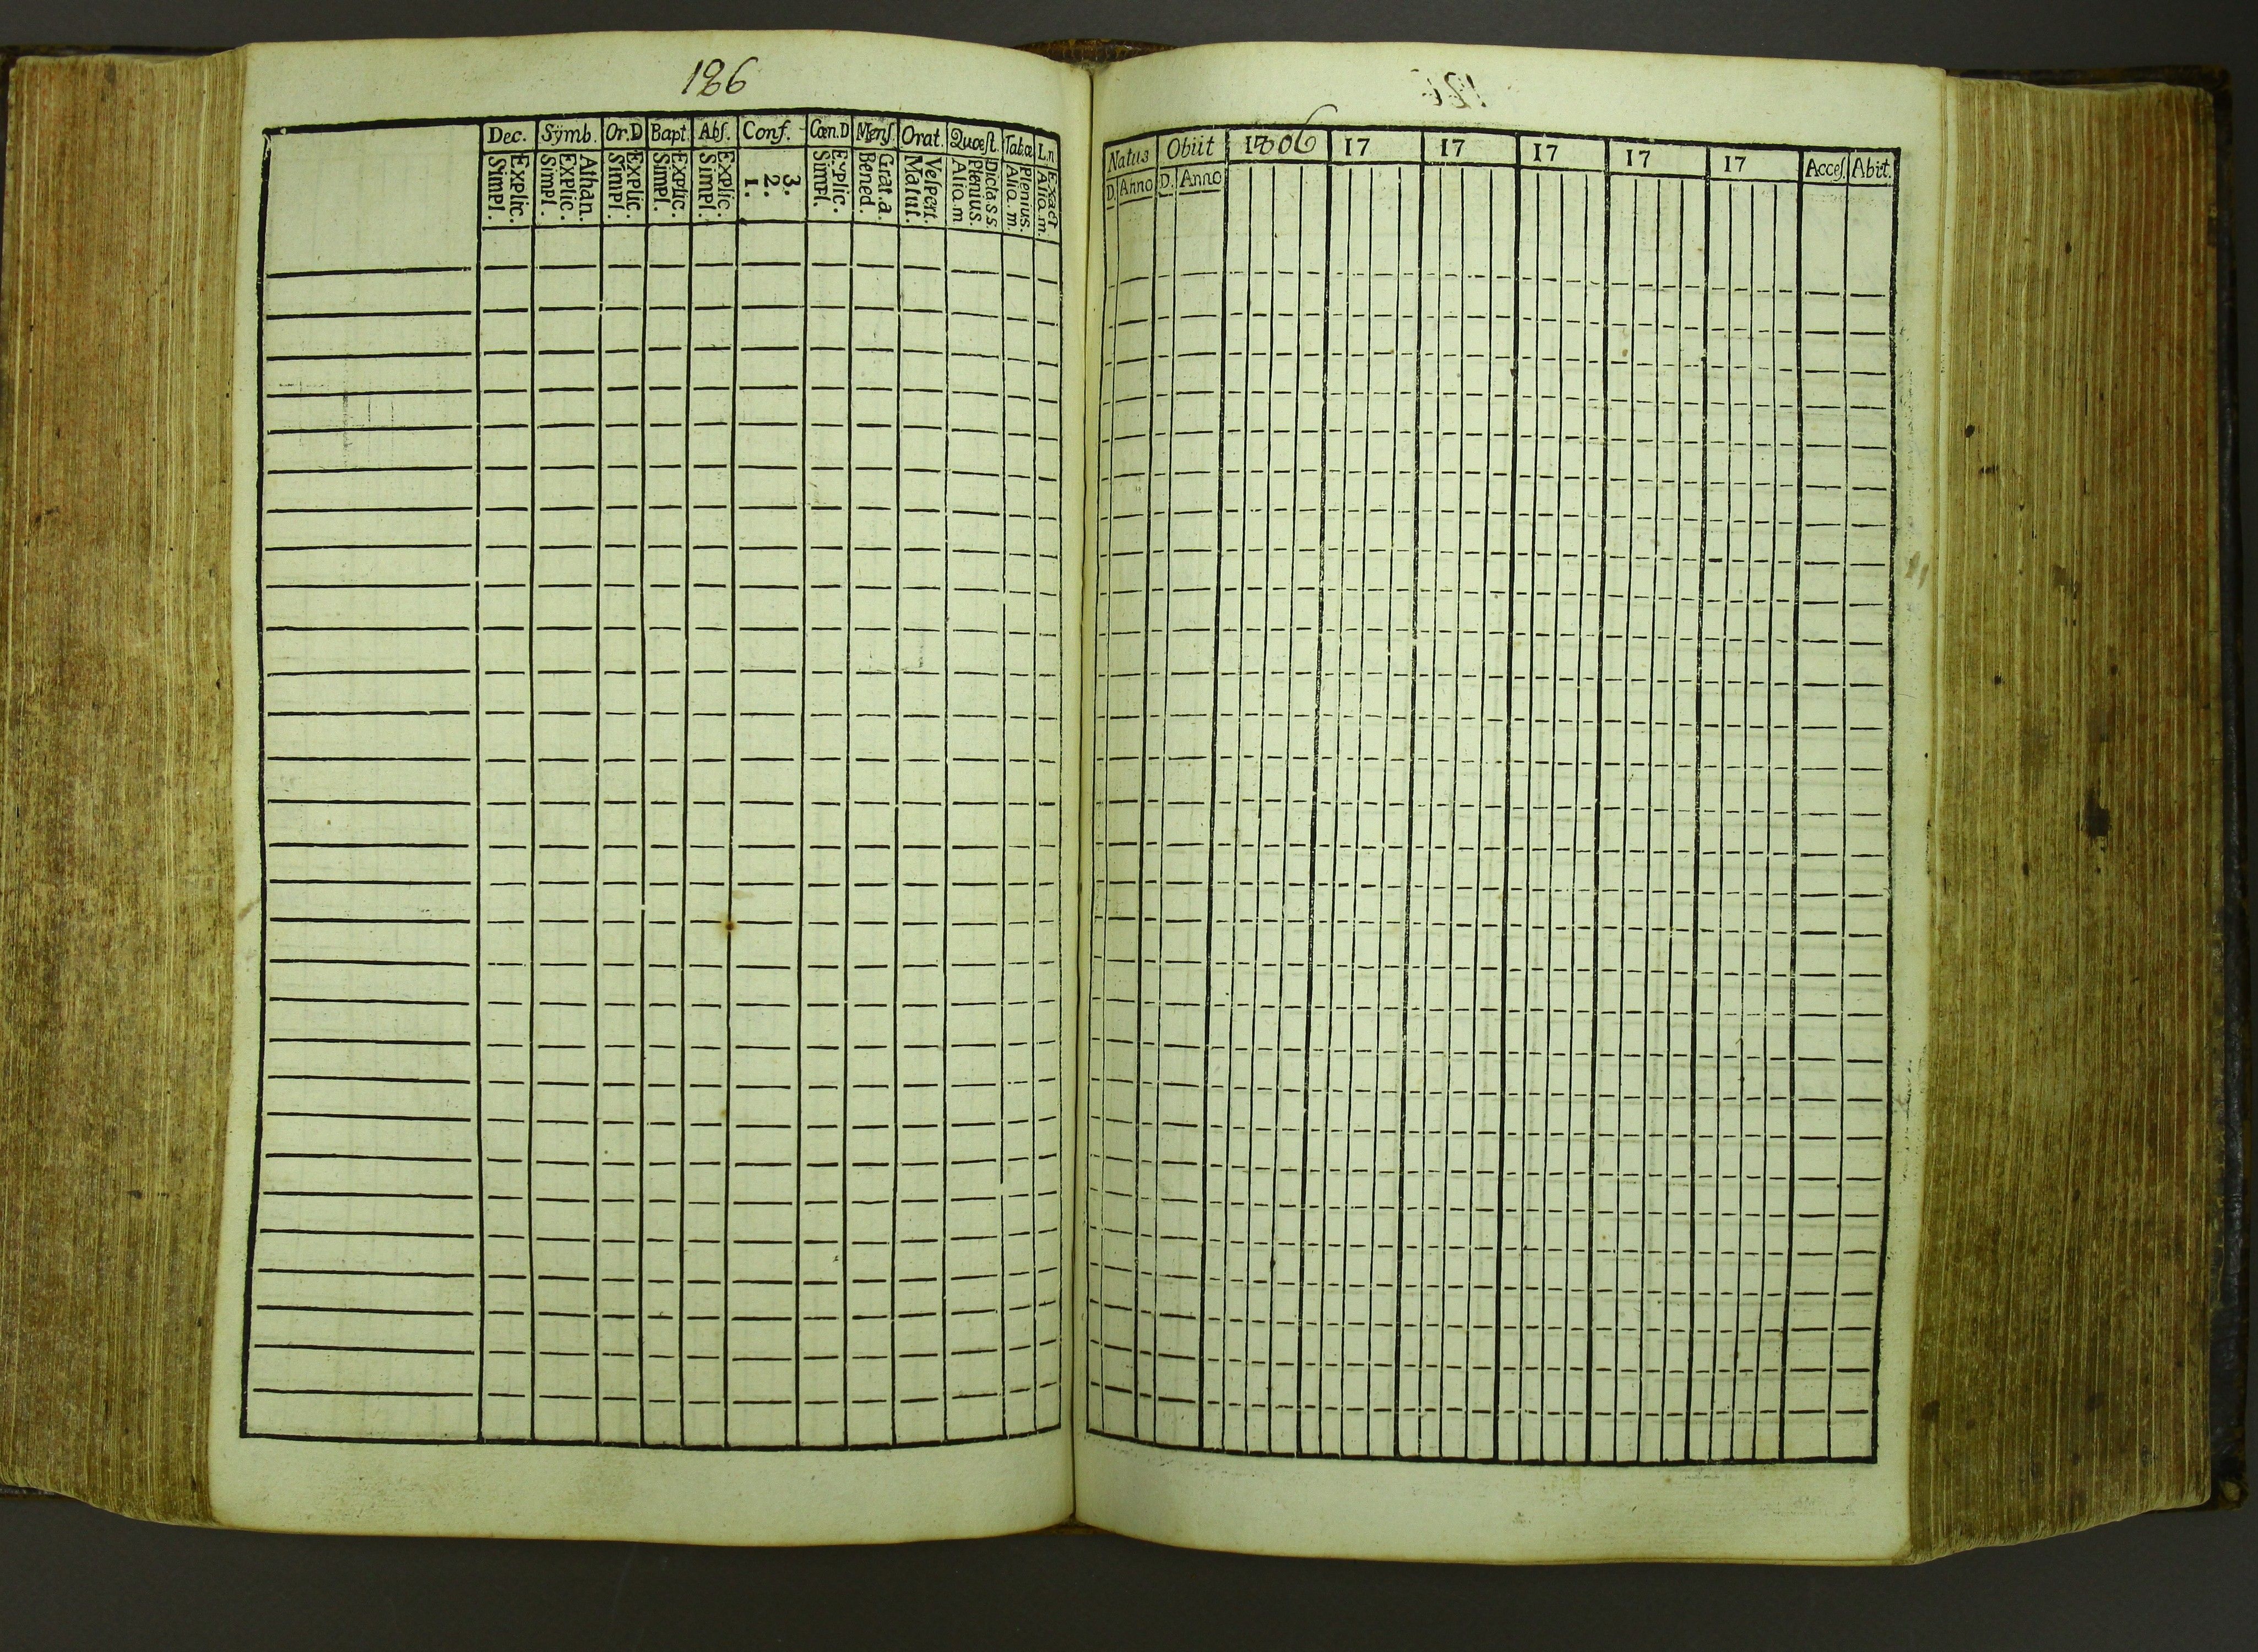 186
Dec. Sÿmb. Or.D Bapt. Abſ. Conf. Cœn.D Menſ. Orat. Quœſt. Tab.œ L.n
Explic. Simpl. Athan. Explic. Simpl. Explic. Simpl. Explic. Simpl. Explic. Simpl. 3. 2. 1. Explic. Simpl. Grat.a. Bened. Veſpert. Matut. Dicta s s. Plenius. Aliq.m Plenius. Aliq.m. Exact Aliq.m.
Natus Obiit 1806 17 17 17 17 17 Acceſ. Abiit.
D. Anno D. Anno